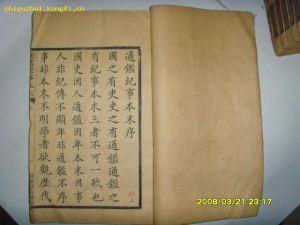 chiguzhai.kongfz.cn
通鑑紀事本末序
國之有史史之有通鑑通鑑之
有紀事本末三者不可一缺也
國史因人通鑑因年本末因事
人非紀傳不顯年非通鑑不序
事非本末不明學者欲觀歷代
2008/03/21 23:17